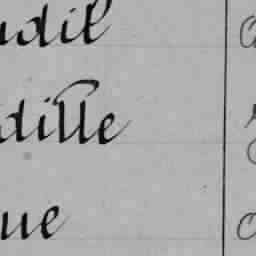 udil
dille
ue